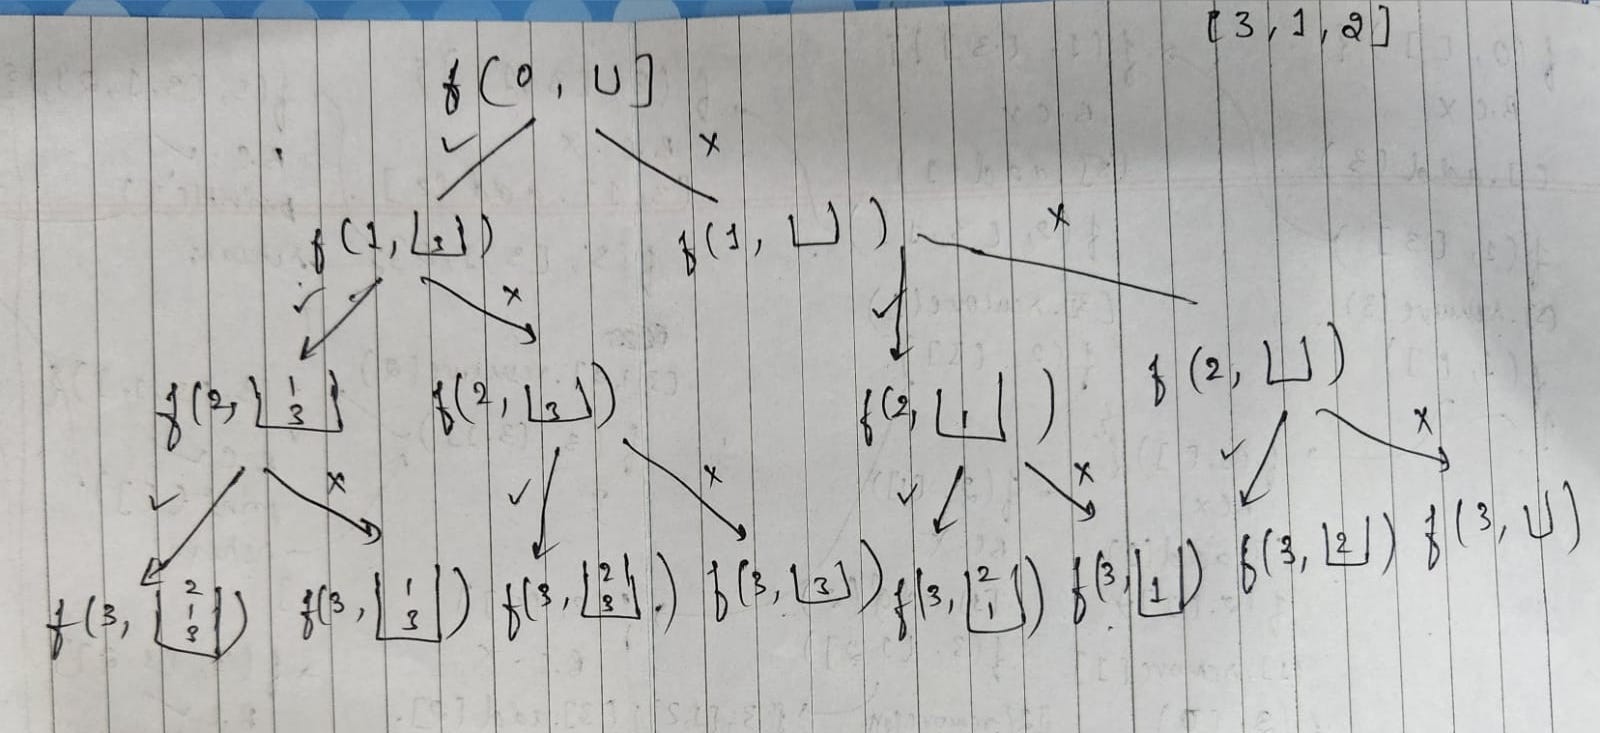 [3, 1, 2]
f(0, ⊔]
✓ x
f(1, ⌊3⌋) f(1, ⌊⌋)
✓ x ✓ x
f(2, ⌊1 3⌋) f(2, ⌊3⌋) f(2, ⌊1⌋) f(2, ⌊⌋)
✓ x ✓ x ✓ x ✓ x
f(3, ⌊2 1 3⌋) f(3, ⌊1 3⌋) f(3, ⌊2 3⌋) f(3, ⌊3⌋) f(3, ⌊2 1⌋) f(3, ⌊1⌋) f(3, ⌊2⌋) f(3, ⊔)